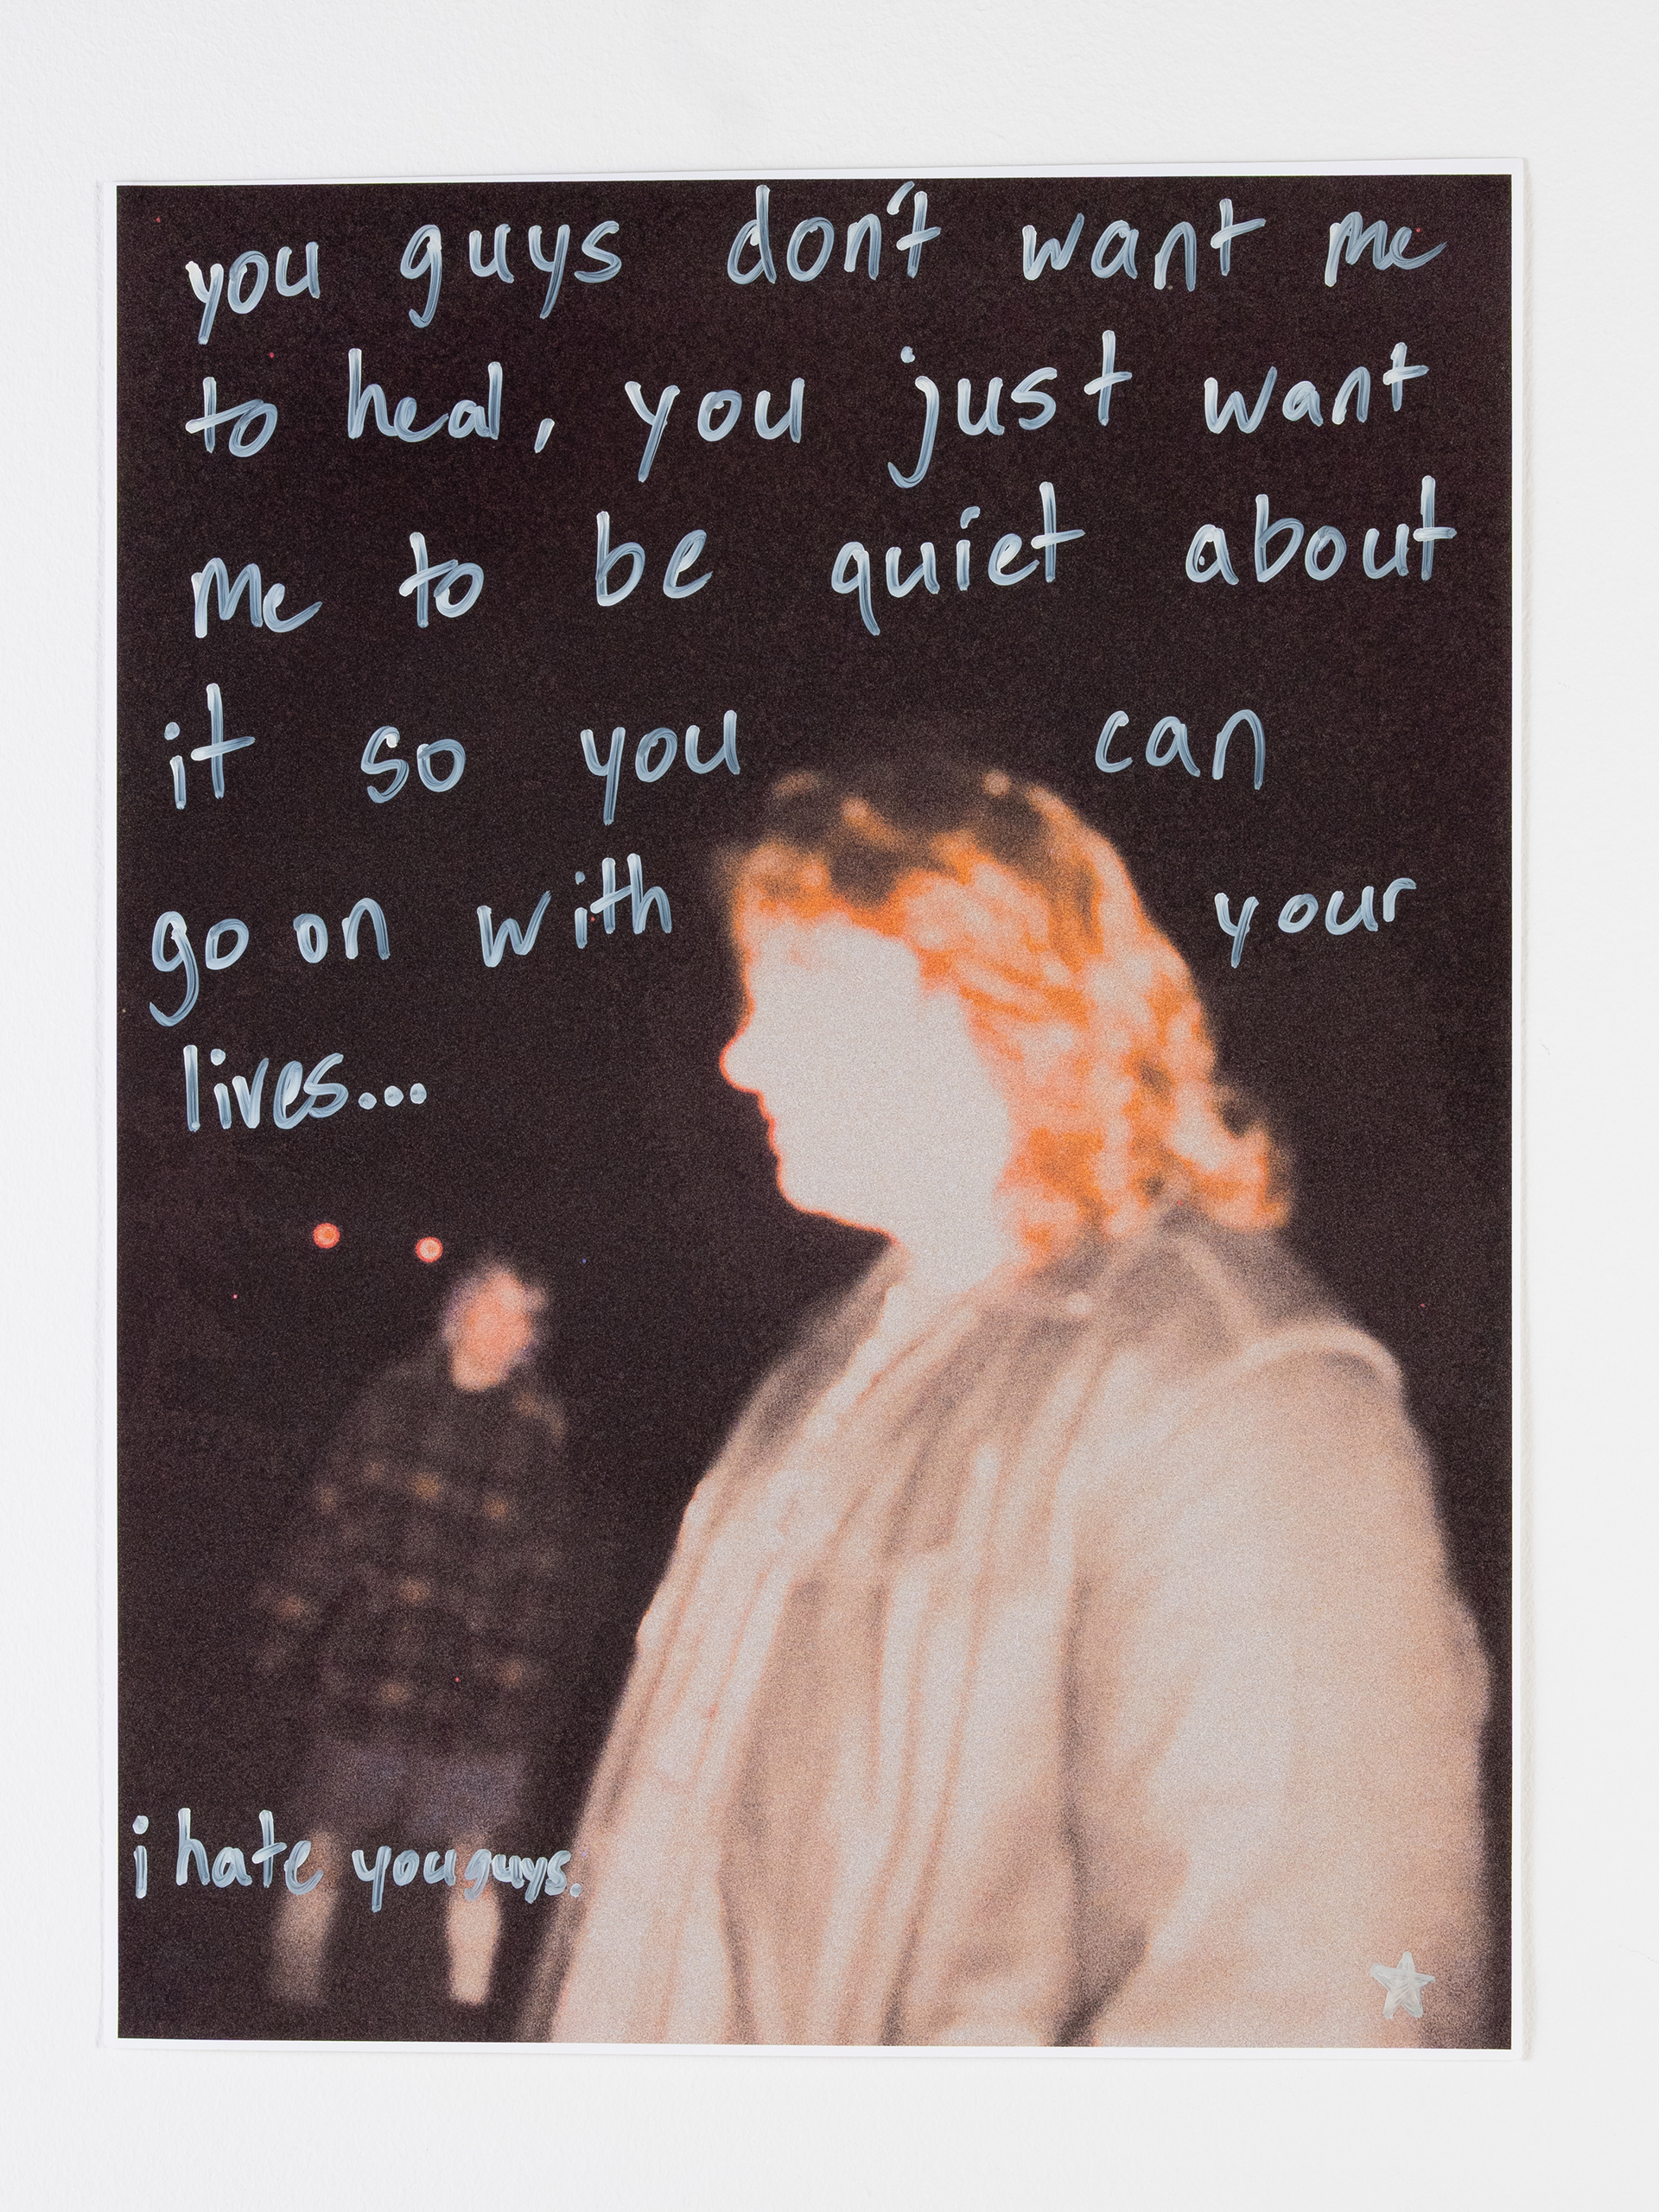 you guys don't want me
to heal, you just want
me to be quiet about
it so you can
go on with your
lives...
i hate you guys.